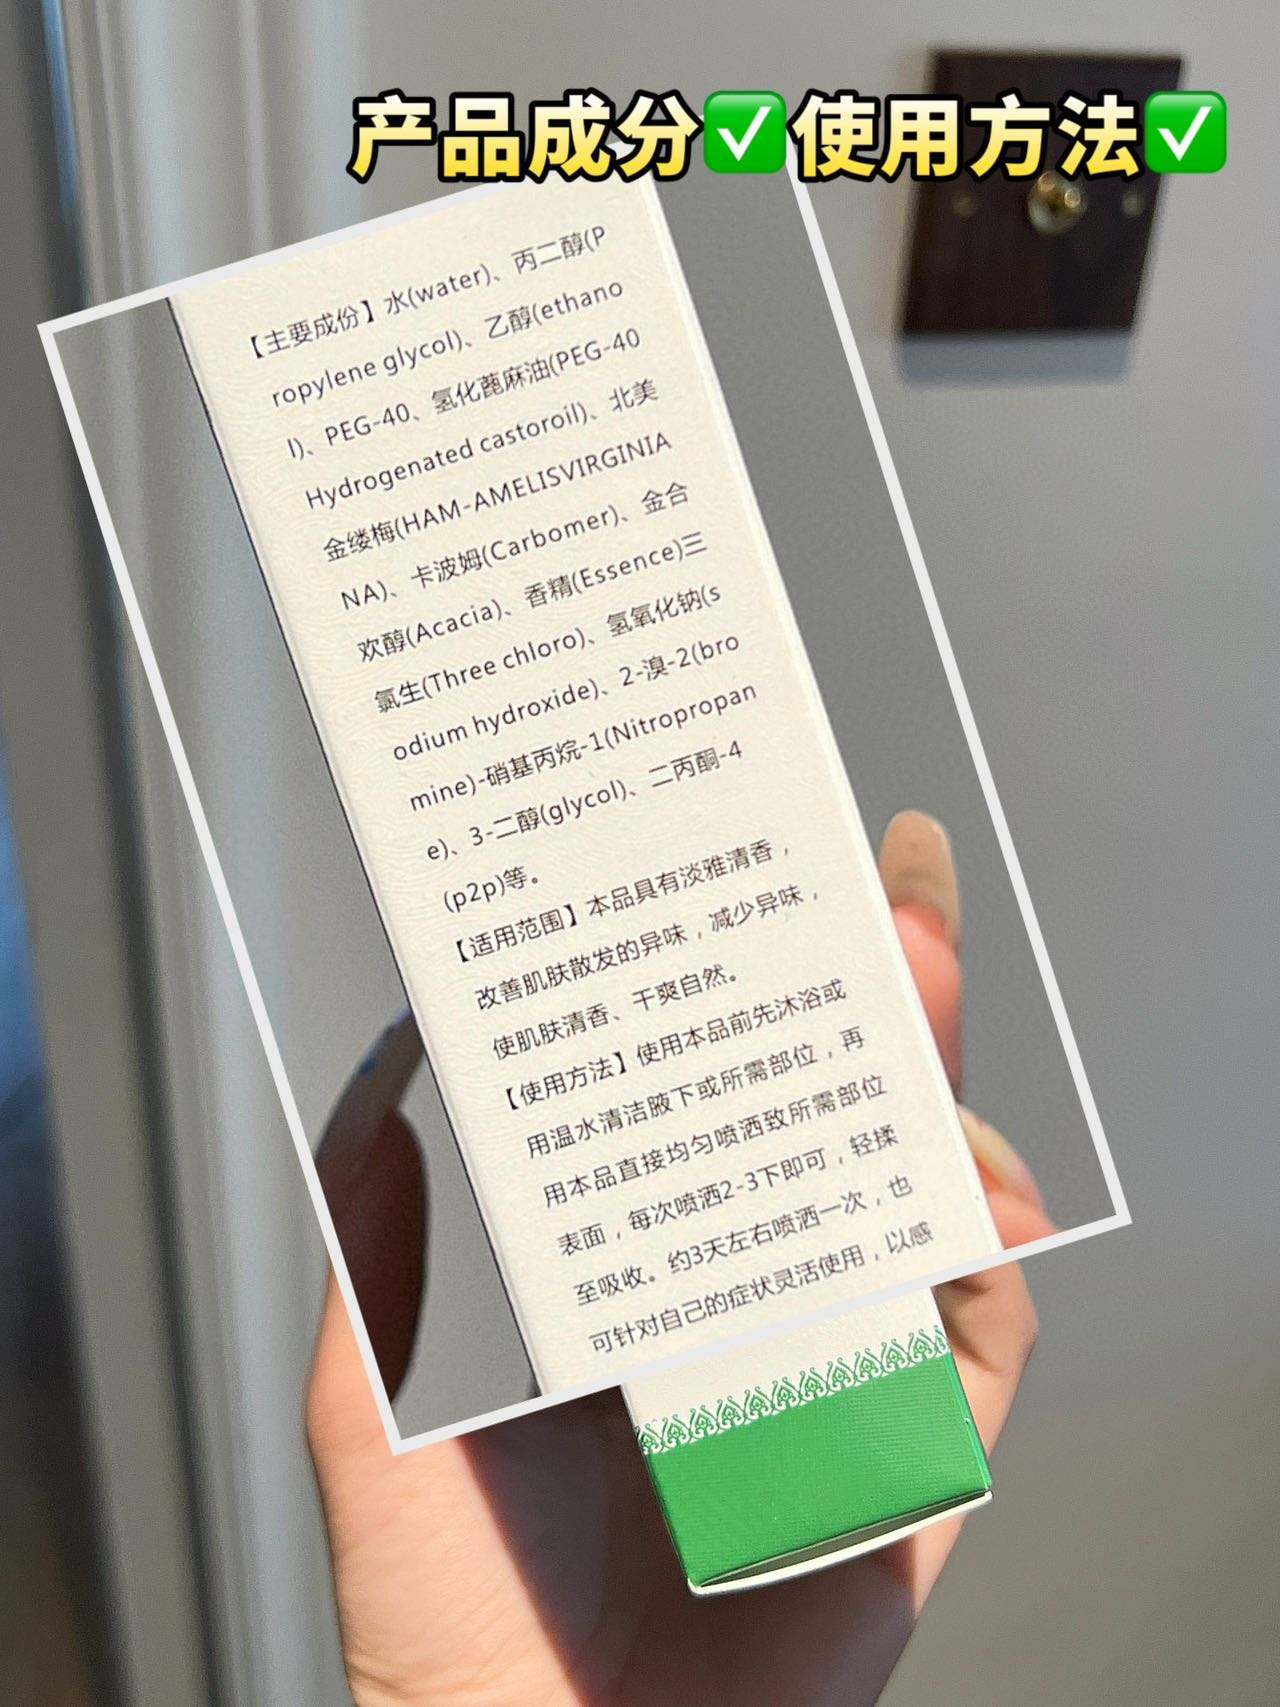 产品成分✅使用方法✅
【主要成份】水(water)、丙二醇(P
ropylene glycol)、乙醇(ethano
l)、PEG-40、氢化蓖麻油(PEG-40
Hydrogenated castoroil)、北美
金缕梅(HAM-AMELISVIRGINIA
NA)、卡波姆(Carbomer)、金合
欢醇(Acacia)、香精(Essence)三
氯生(Three chloro)、氢氧化钠(s
odium hydroxide)、2-溴-2(bro
mine)-硝基丙烷-1(Nitropropan
e)、3-二醇(glycol)、二丙酮-4
(p2p)等。
【适用范围】本品具有淡雅清香，
改善肌肤散发的异味，减少异味，
使肌肤清香、干爽自然。
【使用方法】使用本品前先沐浴或
用温水清洁腋下或所需部位，再
用本品直接均匀喷洒致所需部位
表面，每次喷洒2-3下即可，轻揉
至吸收。约3天左右喷洒一次，也
可针对自己的症状灵活使用，以感